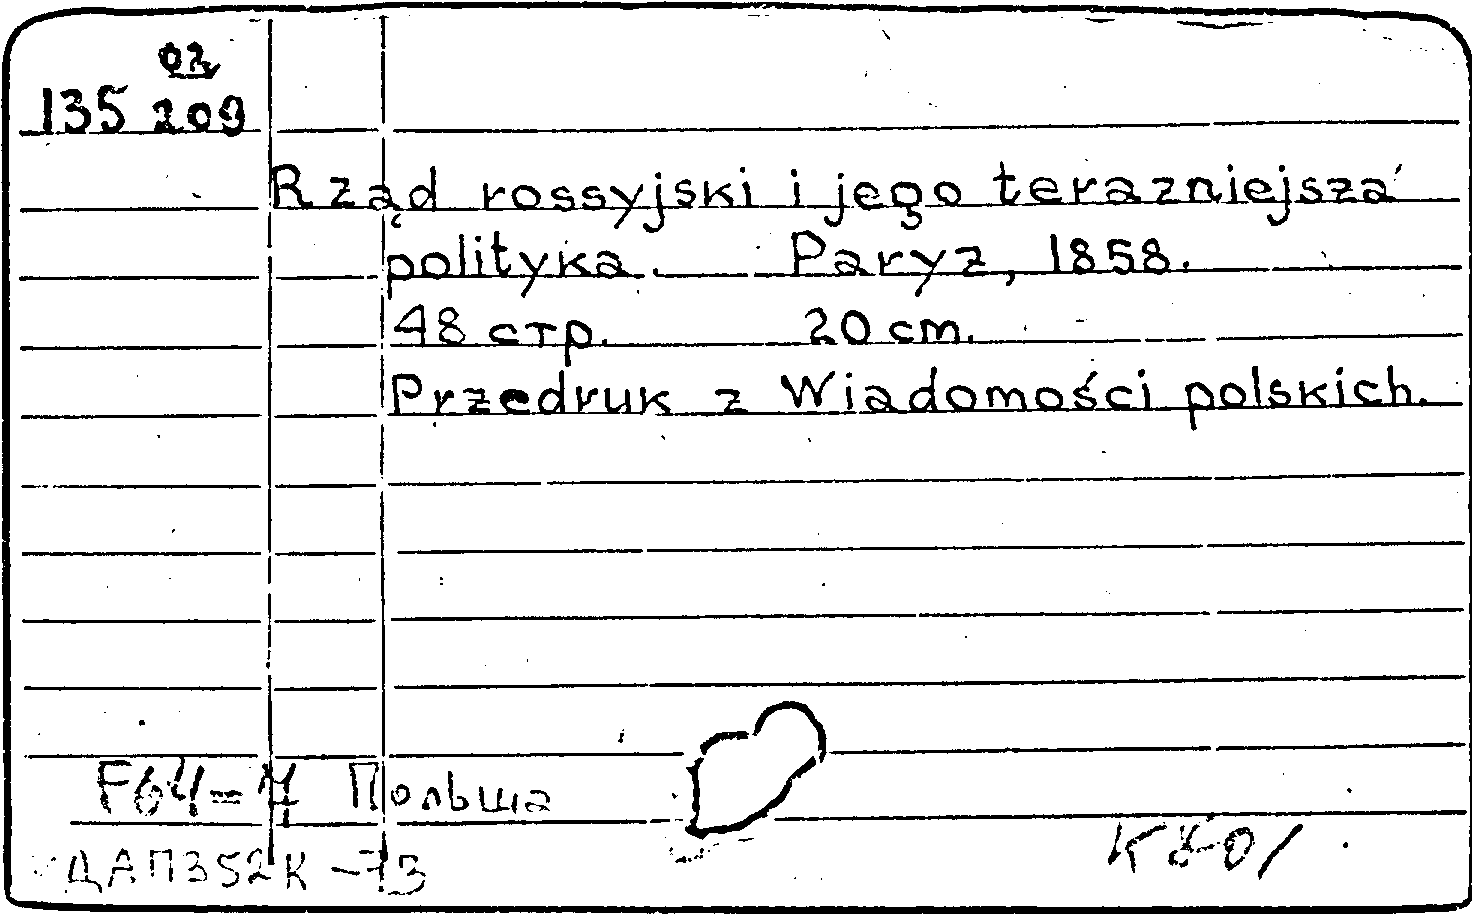 02
135 209
Rząd rossyjski i jego terazniejsza
polityka. Paryz, 1858.
48 стр. 20 cm.
Przedruk z Wiadomości polskich.
F64=4 Польша
ДАП352К-73